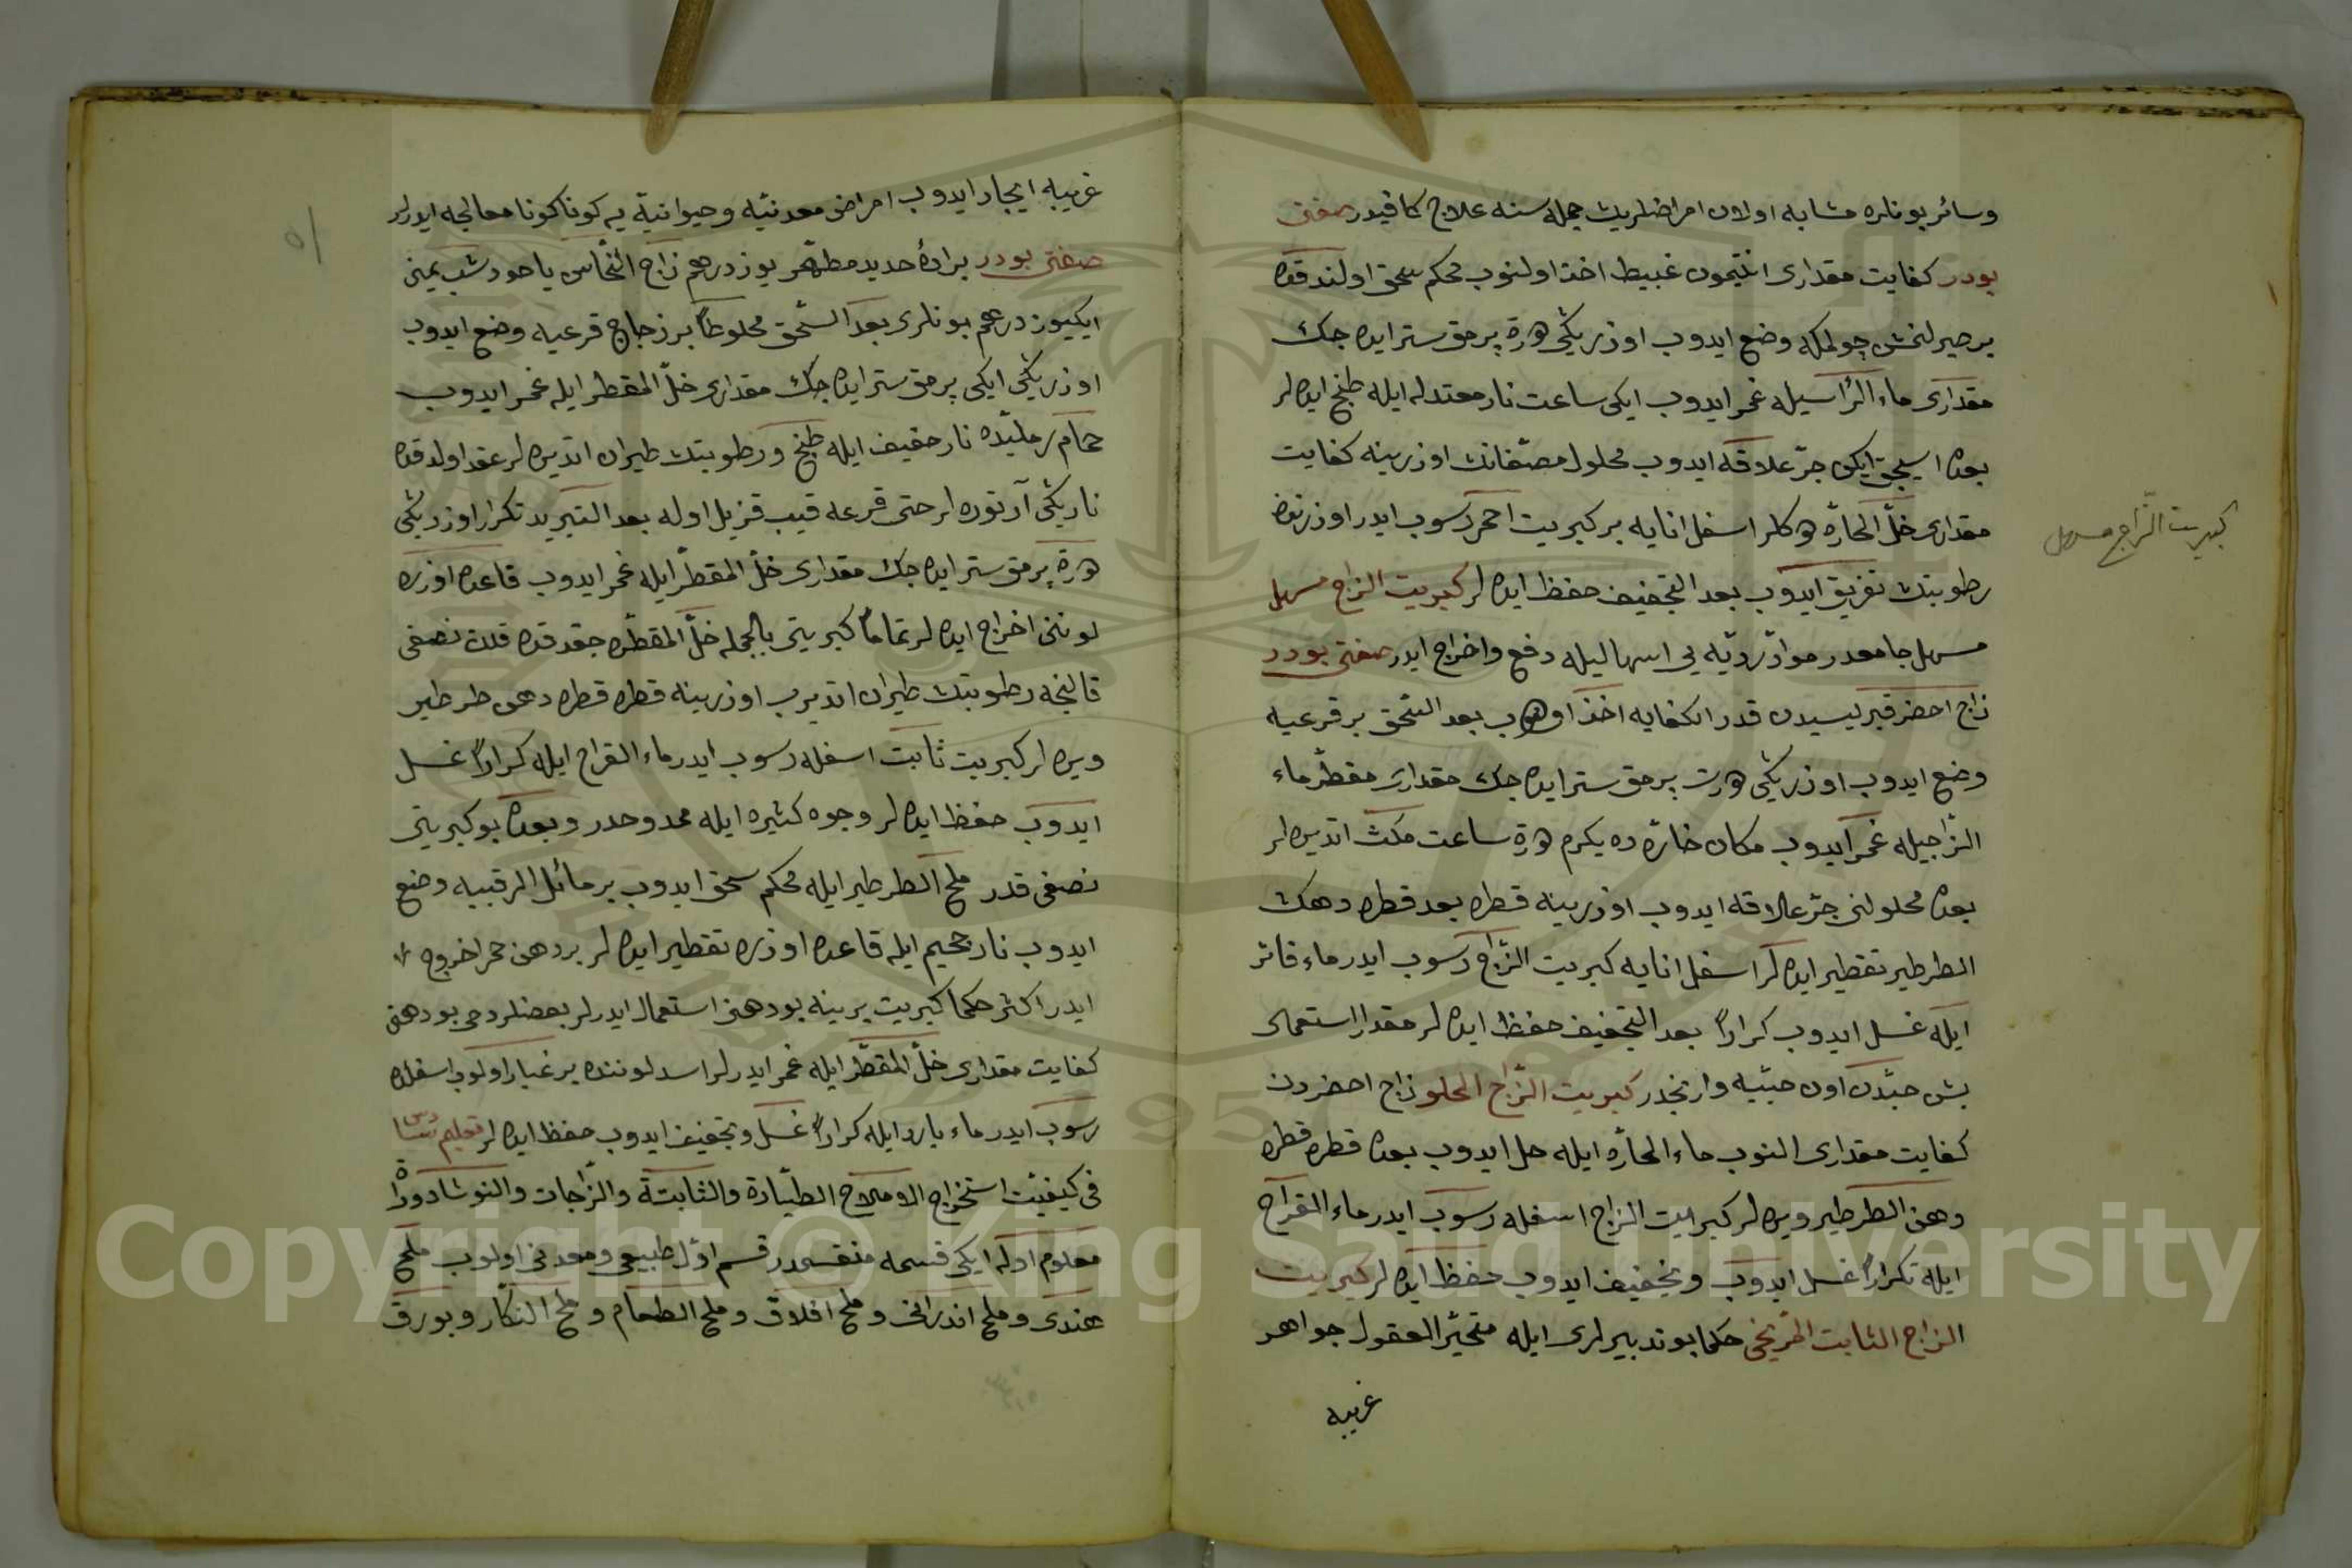 وسائر بونلره مشابه اولان امراضلريڭ جمله سنه علاج كافيدر صفتى
بودر كفايت مقدارى انتيمون غبيط اخذ اولنوب محكم سحق اولندقده
بر صيرلنمش چولمكه وضع ايدوب اوزرينى هرة پرمق ستر ايده جك
مقدارى ماء الرأسيله غمر ايدوب ايكى ساعت نار معتدله ايله طبخ ايده لر
بعده اسيجق ايكن جرّ علاقه ايدوب محلول مصفانڭ اوزرينه كفايت
مقدارى خلّ الحارّه دوكلر اسفل انايه بر كبريت احمر رسوب ايدر اوزرنده
رطوبتڭ تفريق ايدوب بعد التجفيف حفظ ايده لر كبريت الزاج مسهل
مسهل جامعدر موادّ رديّه يى اسهاليله دفع واخراج ايدر صفتى بودر
زاج اخضر قبريسيدن قدر الكفايه اخذ اولنوب بعد السّحق بر قرعيه
وضع ايدوب اوزرينى درت پرمق ستر ايده جك مقدارى مقطّر ماء
الزّاجيله غمر ايدوب مكان حارّه ده يكرم درة ساعت مكث اتديره لر
بعده محلولنى جرّ علاقه ايدوب اوزرينه قطره بعد قطره دهنڭ
الطرطير تقطير ايده لر اسفل انايه كبريت الزّاج رسوب ايدر ماء فاتر
ايله غسل ايدوب كراراً بعد التجفيف حفظ ايده لر مقدار استعمالى
بش حبّه دن اون حبّيه وارنجه در كبريت الزّاج الحلو زاج اخضردن
كفايت مقدارى النوب ماء الحارّه ايله حل ايدوب بعده قطره قطره
دهن الطرطير ويره لر كبريت الزاج اسفله رسوب ايدر ماء القراح
ايله تكراراً غسل ايدوب وتجفيف ايدوب حفظ ايده لر كبريت
الزاج الثابت المرّيخى حكما بو تدبيرلرى ايله متحيّر العقول جواهر
غريبه
كبريت الزّاج مسهل
غريبه ايجاد ايدوب امراض معدنيّه وحيوانيّة يه كوناكونا معالجه ايدرلر
صفتى بودر برادهٔ حديد مطهّر يوز درهم زاج النّحاس ياخود شب يمنى
ايكيوز درهم بونلرى بعد السّحق مخلوطاً بر زجاج قرعيه وضع ايدوب
اوزرينى ايكى پرمق ستر ايده جك مقدارى خلّ المقطّر ايله غمر ايدوب
حمام رمليده نار خفيف ايله طبخ ورطوبتڭ طيران اتديره لر عقد اولدقده
ناريني آرتوره لر حتى قرعه قيپ قزيل اوله بعد التبريد تكرار اوزرينى
درة پرمق ستر ايده جك مقدارى خلّ المقطّر ايله غمر ايدوب قاعده اوزره
لوننى اخراج ايده لر تماماً كبريتى بالجمله خلّ المقطّره چقدقده ثلث نصفى
قالنجه رطوبتڭ طيران اتديرب اوزرينه قطره قطره دهن طرطير
ويره لر كبريت ثابت اسفله رسوب ايدر ماء القراح ايله كراراً غسل
ايدوب حفظ ايده لر وجوه كثيره ايله ممدوحدر وبعده بو كبريتى
نصفى قدر ملح الطرطير ايله محكم سحق ايدوب بر مائل الرقبيه وضع
ايدوب نار جحيم ايله قاعده اوزره تقطير ايده لر بر دهن حمر اخروج
ايدر اكثر حكما كبريت يرينه بو دهنى استعمال ايدرلر بعضلر دخى بو دهنى
كفايت مقدارى خلّ المقطّر ايله غمر ايدرلر اسد لوننده بر غبار اولوب اسفله
رسوب ايدر ماء بارد ايله كراراً غسل وتجفيف ايدوب حفظ ايده لر تعليم سادس
فى كيفيّت استخراج الاملاح الطيّارة والثابتة والزّاجات والنوشادورات
معلوم اوله ايكى قسمه منقسمدر قسم اوّل طبيعى ومعدنى اولوب ملح
هندى وملح اندرانى وملح افلاق وملح الطعام وملح التنكار وبورق
٥١